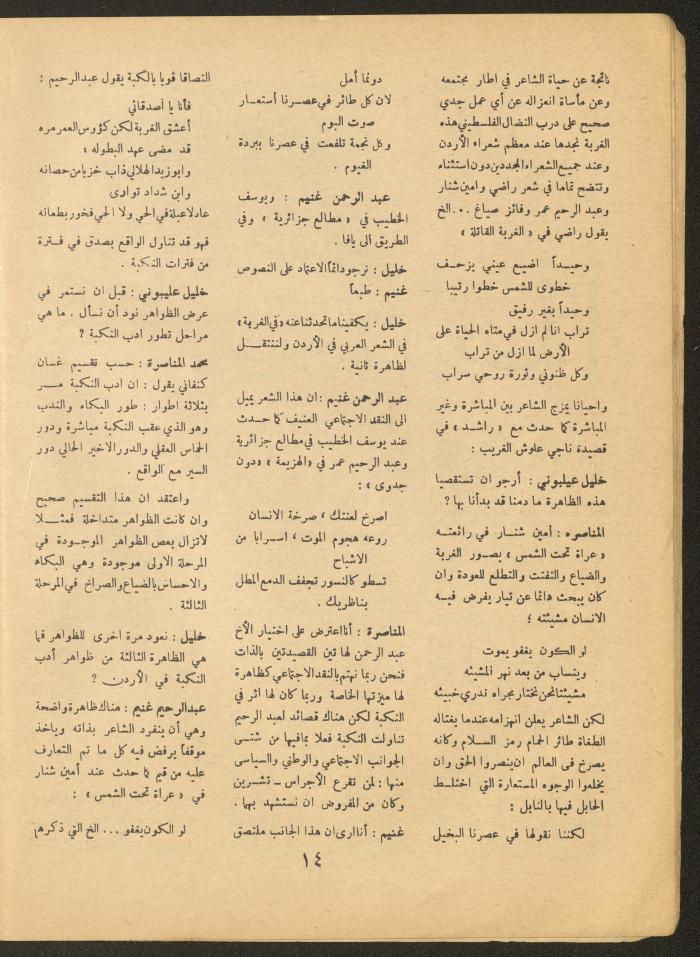 ناتجة عن حياة الشاعر في اطار مجتمعه
وعن مأساة انعزاله عن أي عمل جدي
صحيح على درب النضال الفلسطيني هذه
الغربة نجدها عند معظم شعراء الأردن
وعند جميع الشعراء المجددين دون استثناء
وتتضح تماما في شعر راضي وامين شنار
وعبد الرحيم عمر وفائز صياغ ... الخ
يقول راضي في « الغربة القاتلة »
وحيداً اضيع عيني يزحف
خطوى للشمس خطوا رتيبا
وحيداً بغير رفيق
تراب انا لم ازل في متاه الحياة على
الأرض لما ازل من تراب
وكل ظنوني وثورة روحي سراب
واحيانا يمزج الشاعر بين المباشرة وغير
المباشرة كما حدث مع « راشد » في
قصيدة ناجي علوش الغريب :
خليل عيلبوني : أرجو ان تستقصيا
هذه الظاهرة ما دمنا قد بدأنا بها ؟
المناصره : أمين شنار في رائعته
« عراة تحت الشمس » يصور الغربة
والضياع والتفتت والتطلع للعودة وان
كان يبحث دائما عن تيار يفرض فيه
الانسان مشيئته ؛
لو الكون يغفو يموت
وينساب من بعد نهر المشيئه
مشيئتنا نحن نختار مجراه ندري خبيئه
لكن الشاعر يعلن انهزامه عندما يغتاله
الطغاة طائر الحمام رمز السلام وكانه
يصرخ في العالم ان ينصروا الحق وان
يخلعوا الوجوه المستعارة التي اختلط
الحابل فيها بالنابل :
لكننا نقولها في عصرنا البخيل
دونما أمل
لان كل طائر في عصرنا أستعار
صوت البوم
وكل نجمة تلفعت في عصرنا ببردة
الغيوم .
عبد الرحمن غنيم : ويوسف
الخطيب في « مطالع جزائرية » وفي
الطريق الى يافا .
خليل : نرجو دائماً الاعتماد على النصوص
غنيم : طبعاً
خليل : يكفينا ما تحدثنا عنه « في الغربة »
في الشعر العربي في الأردن ولننتقل
لظاهرة ثانية .
عبد الرحمن غنيم : ان هذا الشعر يميل
الى النقد الاجتماعي العنيف كما حدث
عند يوسف الخطيب في مطالع جزائرية
وعبد الرحيم عمر في « الهزيمة » « دون
جدوى » :
اصرخ لعنتك ، صرخة الانسان
روعه هجوم الموت ، اسرابا من
الاشباح
تسطو كالنسور تجفف الدمع المطل
بناظريك .
المناصرة : أنا اعترض على اختيار الأخ
عبد الرحمن لها تين القصيدتين بالذات
فنحن ربما نهتم بالنقد الاجتماعي كظاهرة
لها ميزتها الخاصة وربما كان لها اثر في
النكبة لكن هناك قصائد لعبد الرحيم
تناولت النكبة فعلا بما فيها من شتى
الجوانب الاجتماعي والوطني والسياسى
منها : لمن تقرع الأجراس ــ تشرين
وكان من المفروض ان نستشهد بهما .
غنيم : أنا ارى ان هذا الجانب ملتصق
التصاقا قويا بالنكبة يقول عبد الرحيم :
فأنا يا أصدقائي
أعشق الغربة لكن كؤوس العمر مره
قد مضى عهد البطوله ؛
وابو زيد الهلالي ذاب خزيا من حصانه
وابن شداد توارى
عاد لا عبلة في الحي ولا الحي فخور بطعانه
فهو قد تناول الواقع بصدق في فترة
من فترات النكبة .
خليل عليبوني : قبل ان نستمر في
عرض الظواهر نود أن نسأل . ما هي
مراحل تطور ادب النكبة ؟
محمد المناصرة : حسب تقسيم غسان
كنفاني يقول : ان ادب النكبة مر
بثلاثة اطوار : طور البكاء والندب
وهو الذي عقب النكبة مباشرة ودور
الحماس العقلي والدور الاخير الحالي دور
السير مع الواقع .
واعتقد ان هذا التقسيم صحيح
وان كانت الظواهر متداخلة فمثلا
لا تزال بعض الظواهر الموجودة في
المرحلة الاولى موجودة وهي البكاء
والاحساس بالضياع والصراخ في المرحلة
الثالثة .
خليل : نعود مرة اخرى للظواهر فما
هي الظاهرة الثالثة من ظواهر أدب
النكبة في الأردن ؟
عبد الرحيم غنيم : هناك ظاهرة واضحة
وهي أن ينفرد الشاعر بذاته وياخذ
موقفاً يرفض فيه كل ما تم التعارف
عليه من قيم كما حدث عند أمين شنار
في « عراة تحت الشمس » :
لو الكون يغفو ... الخ التي ذكرهم
١٤